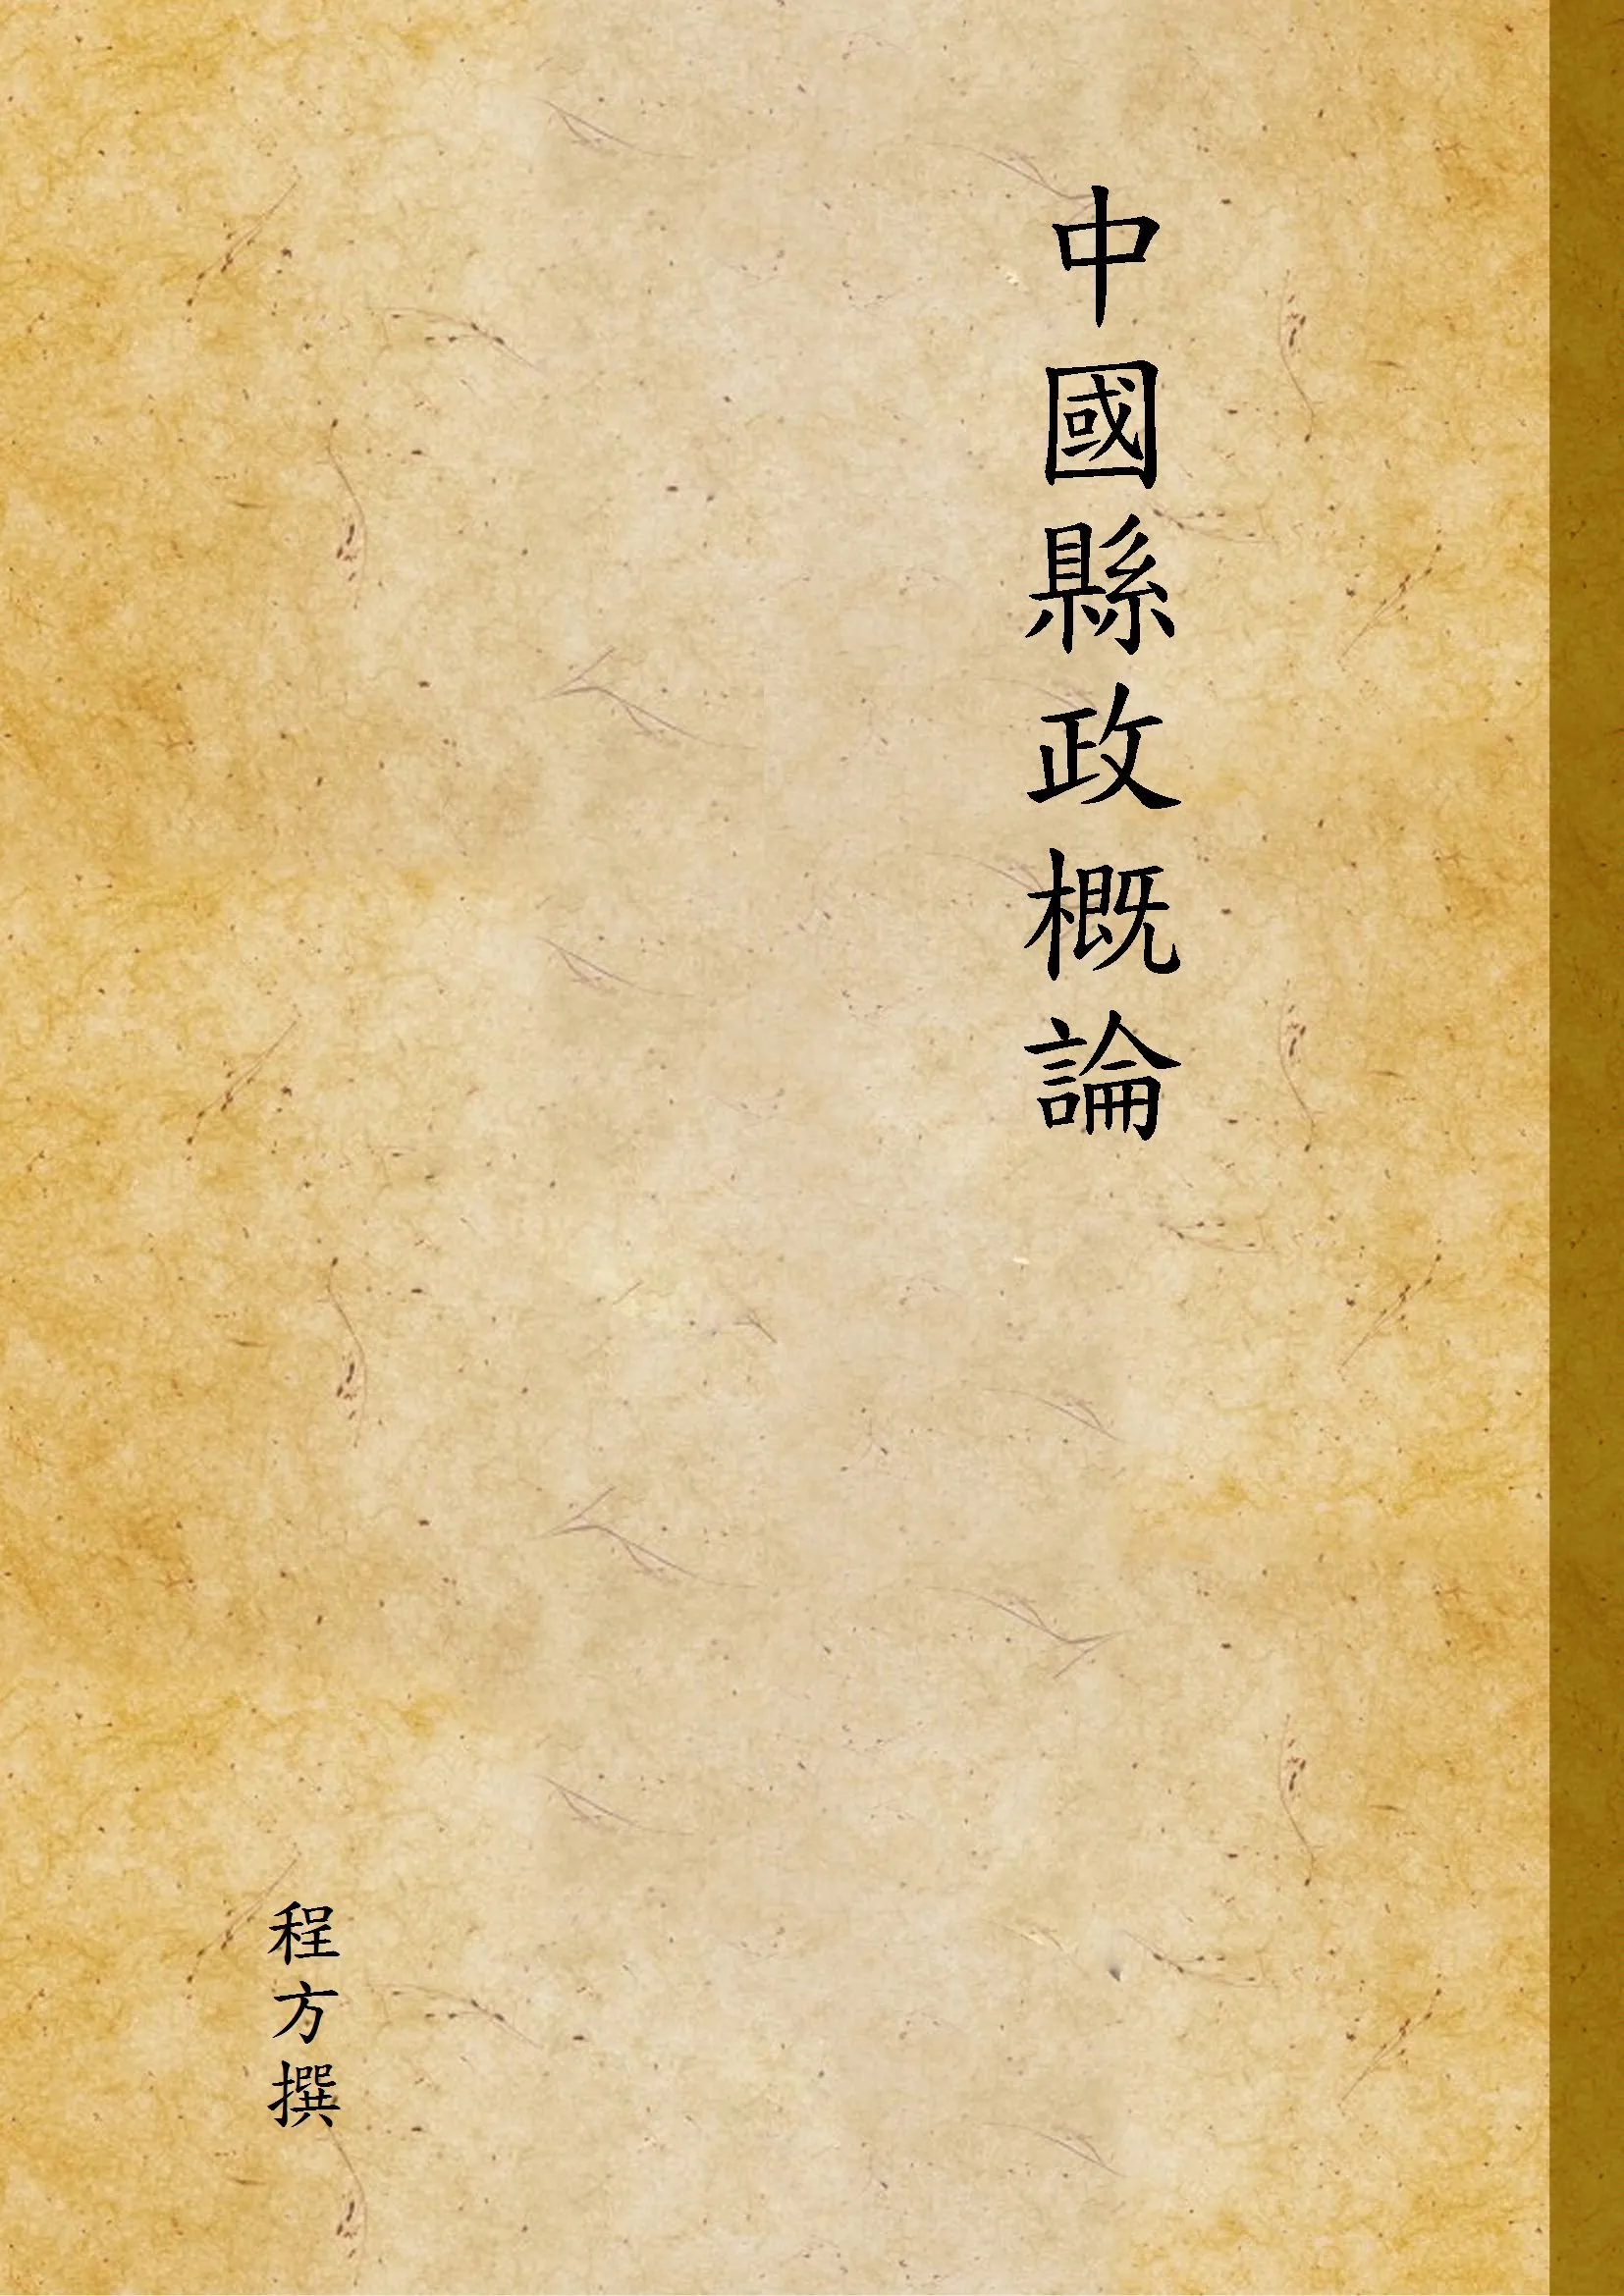 中國縣政概論
程方撰